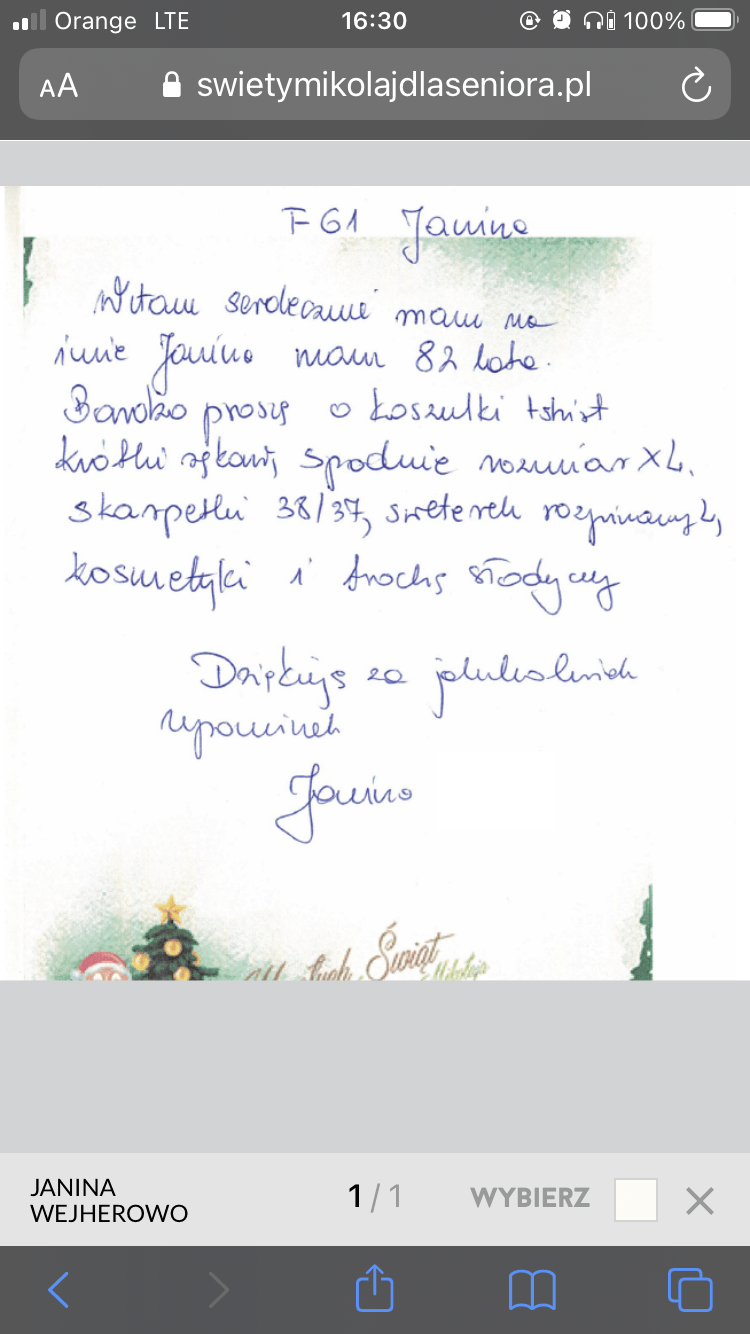 Orange LTE 16:30 100%
AA swietymikolajdlaseniora.pl
F61 Janina
Witam serdecznie mam na
imie Janina mam 82 lata.
Bardzo proszę o koszulki tshirt
krótki rękaw, spodnie rozmiar XL,
skarpetki 38/37, sweterek rozpinany L,
kosmetyki i trochę słodyczy
Dziękuję za jakikolwiek
upominek
Janina
Wesołych Świąt
Mikołaja
JANINA
WEJHEROWO
1 / 1
WYBIERZ